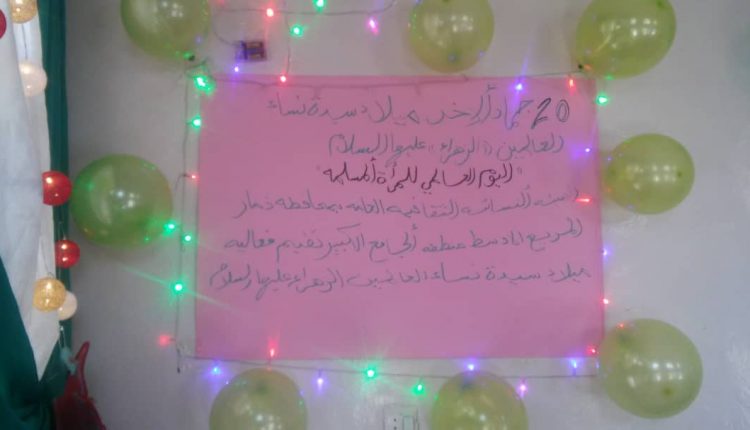 20 جماد الآخر ميلاد سيدة نساء
العالمين "الزهراء" عليها السلام
"اليوم العالمي للمرأة المسلمة"
النسائية الثقافية العامة بمحافظة ذمار
المربع الاوسط منطقة الجامع الكبير تقديم فعالية
ميلاد سيدة نساء العالمين الزهراء عليها السلام